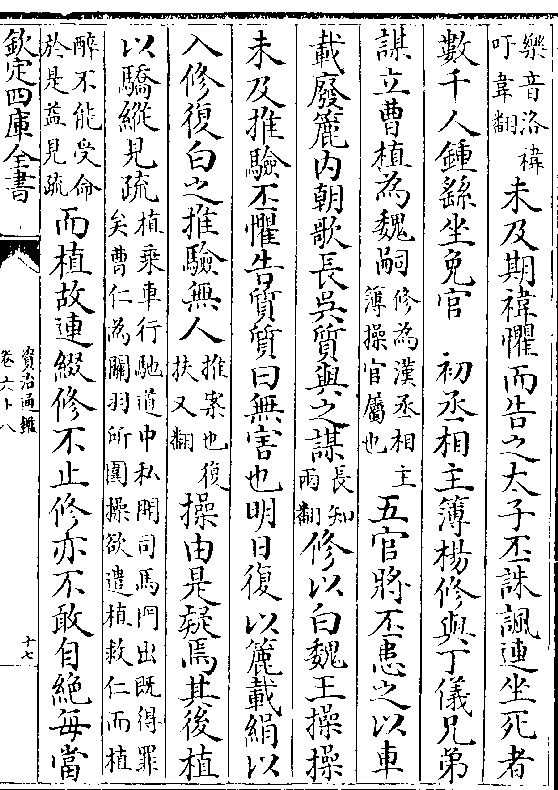 樂音洛禕
吁韋翻
未及期禕懼而告之太子丕誅諷連坐死者
數千人鍾繇坐免官　初丞相主簿楊修與丁儀兄弟
謀立曹植為魏嗣
修為漢丞相主
簿操官屬也
五官將丕患之以車
載廢簏内朝歌長吳質與之謀
長知
兩翻
修以白魏王操操
未及推驗丕懼告質質曰無害也明日復以簏載絹以
入修復白之推驗無人
推案也復
扶又翻
操由是疑焉其後植
以驕縱見疏
植乗車行馳道中私開司馬門出既得罪
矣曹仁為關羽所圍操欲遣植救仁而植
醉不能受命
於是益見疏
而植故連綴修不止修亦不敢自絶每當
欽定四庫全書
資治通鑑
卷六十八
十七